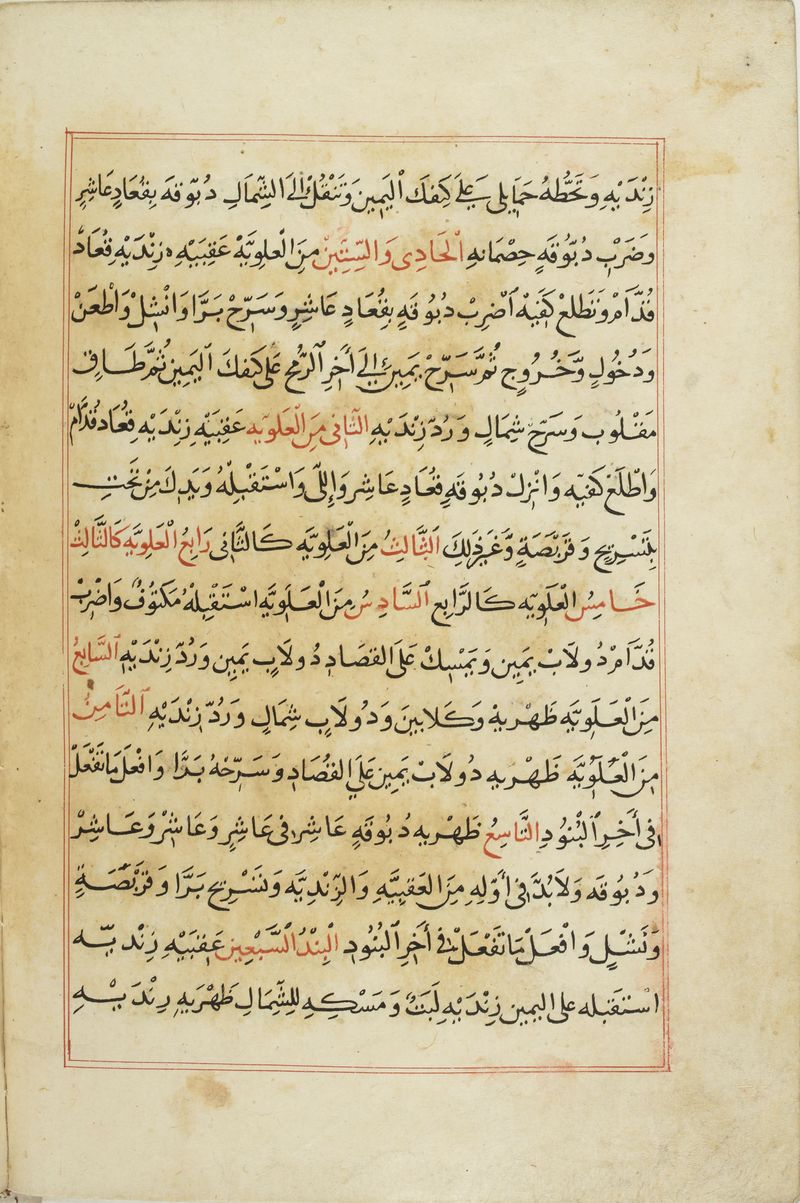 زِنْدَيْهِ وَتَحُطُّهُ حَمَايلى عَلَى كَتِفكَ اليَمِينَ وَتَنْقُلُ إلَى الشِّمَالِ دُبّوُقَه بِقُعَادٍ عَاشِرٍ
وضَرْبِ دُبّوُقَهٍ حِصْمَانِهِ الحَادِى وَالسِّتِّيْنَ مِنَ الْعلوِيَّةْ عَقِبَيْهِ زِنْدَيْهِ قعَادْ
قُدَّامْ وَتَطلعْ كَفّيَهْ اضْرِبْ دُبُوقَهٍ بِقُعَادٍ عَاشِرٍ وَسَرّحْ بَرَّا وَانْشِلْ وَاطْعَنْ
وَدُخُولٍ وَخُرُوجٍ ثُمَّ سَرّحْ يَمِينْ إلَى أَخِرِ الرُّمْحِ عَلَى كَتفكَ اليَمِينْ ثُمَّ طَارِف
مَقْلُوب وَسَرّحْ شِمَالٍ وَرُدّ زِنْدَيْهِ الثَّانِى مِنَ الْعَلَويّهِ عَقِبَيْهِ زِنْدَيْهِ قعَاد قُدَّامْ
وَاطْلَعْ كَفّيَهْ وَانْزِلْ دُبُوقَهٍ قعَادٍ عَاشِر وَإلَّى وَاسْتَقْبِلْهُ وَيَدِكَ مِنْ تَحْتٍ
بِتَسْرِيحٍ وَقَرْبَصَةٍ وَغَيْرِ ذَلِكَ الثَّالِثُ مِنَ الْعَلِوِيَّهِ كَالثَّانِى رَابِعُ الْعَلِويَّهِ كَالثَّالِثْ
خَامِسُ الْعَلَوِيّهِ كَالرَّابِعِ السَّادِسُ مِنَ الْعَلَوِيَّهِ اسْتَقْبِلْهُ مَكْتُوُفْ وَاضْرِبْ
قُدَّامْ دُولَابْ يَمِينٍ وَيَمْسِكْ عَلَى القصَادِ دُولَابٍ يَمِينٍ وَرُدّ زِنْدَيْهِ السَّابِعُ
مِنَ الْعَلَوِيَّهِ ظَهْرِيهْ وَكَلَابينَ وَدُولَابٍ شِمَالٍ وَرُدّ زِنْدَيْهِ الثَّامِنُ
مِنَ الْعُلَوِيَّهِ ظَهْريه دُولَابْ يَمِينْ عَلَى القُصَادِ وَسَرّحهُ بَرَّا وَافْعَلْ مَا تَفْعَلْ
فِى أَخِرِ الْبُنُودِ التَّاسِعُ ظَهْريه دُبُوقَهٍ عَاشِر فى عَاشِرٍ وَعَاشِرْ وَعَاشِرْ
وَدُبُوقَه وَلَابُدَّ فِى أوّلِهِ مِنَ العَقِبِيَّهِ وَالزِّنْدِيَّه وَتَسْرِيح بَرَّا وَقَرْبَصَةٍ
وَنَشْلٍ وَافْعَلْ مَا تَفْعَلْ فِى أَخِرِ الْبُنُودِ الْبِنْدُ السَّبْعِين عَقِبَيْهِ زِنْديّه
استقبله على اليمين زِنْدَيْهِ لَبَثْ وَمَسْكِهِ للشِّمَالِ ظَهْرِيهِ زِنْدَيْهِ